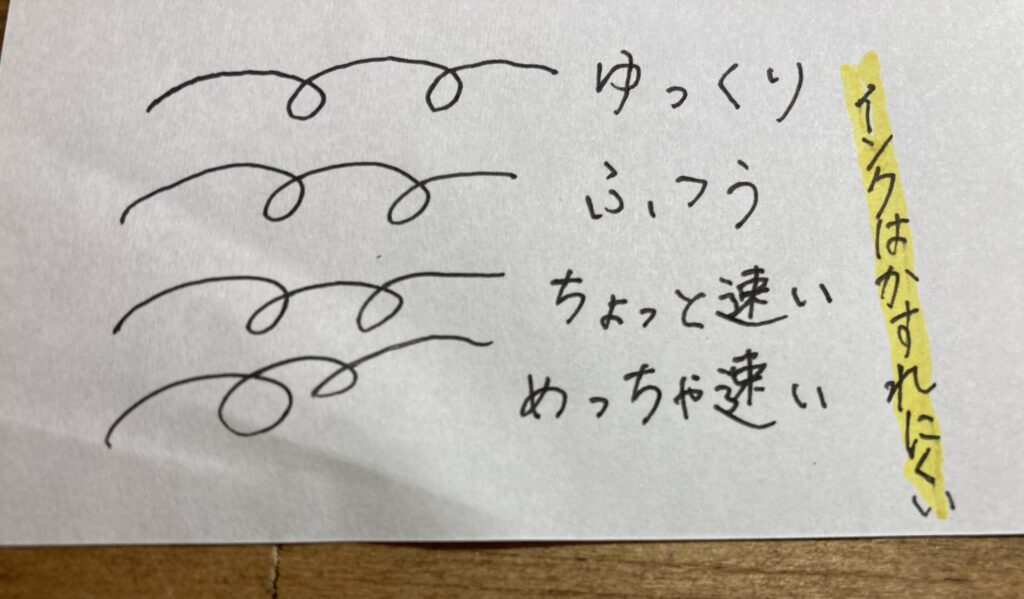 ゆっくり
ふつう
ちょっと速い
めっちゃ速い
インクはかすれにくい